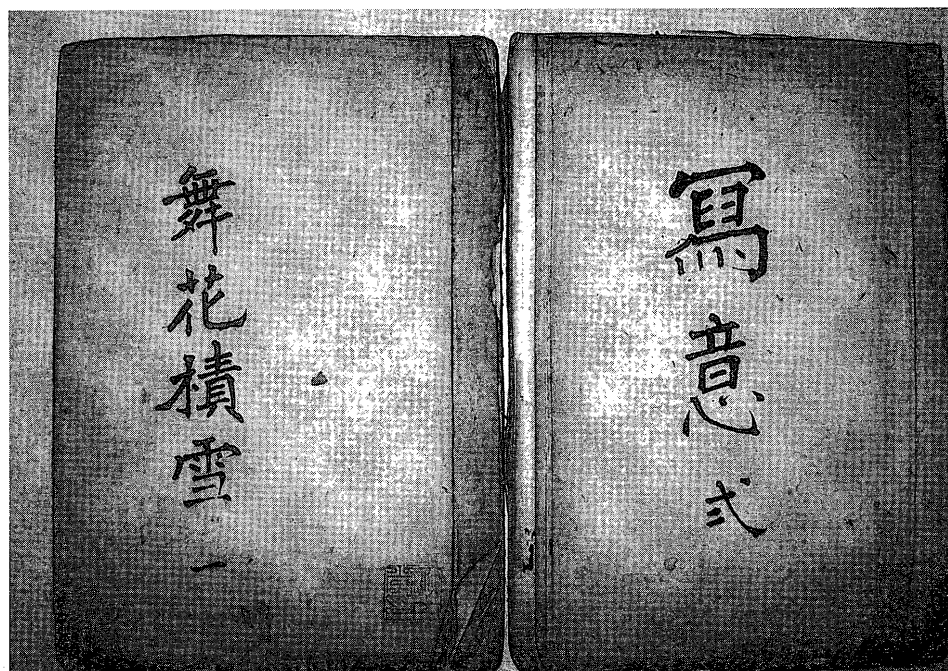 冩意弍
舞花積雪一